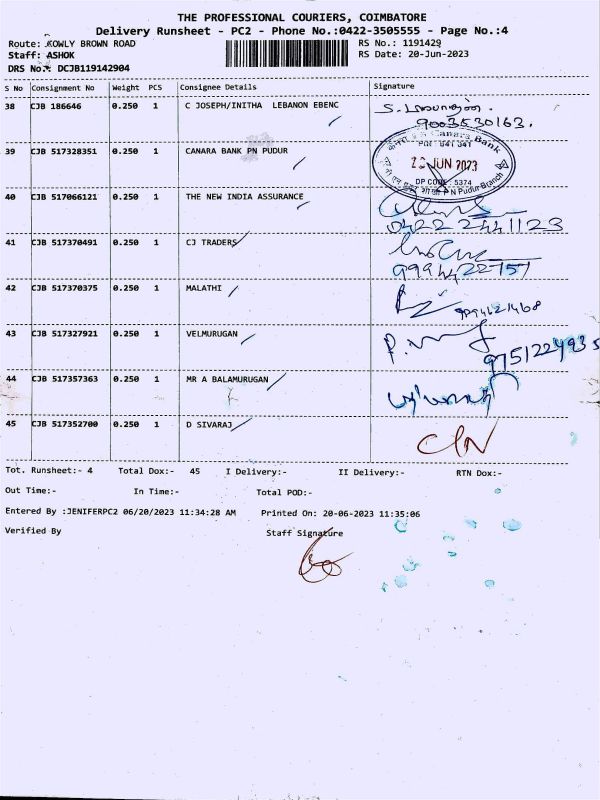 THE PROFESSIONAL COURIERS, COIMBATORE
Delivery Runsheet - PC2 - Phone No.:0422-3505555 - Page No.:4
Route: ROWLY BROWN ROAD
RS No.: 1191429
Staff: ASHOK
RS Date: 20-Jun-2023
DRS No.: DCJB119142904
S No Consignment No Weight PCS Consignee Details Signature
38 CJB 186646 0.250 1 C JOSEPH/INITHA LEBANON EBENC
9003530163.
39 CJB 517328351 0.250 1 CANARA BANK PN PUDUR
Canara Bank
JUN 2023
DP CODE: 5374
P N Pudur Branch
40 CJB 517066121 0.250 1 THE NEW INDIA ASSURANCE
0422 2441123
41 CJB 517370491 0.250 1 CJ TRADERS
42 CJB 517370375 0.250 1 MALATHI
43 CJB 517327921 0.250 1 VELMURUGAN
9751224935
44 CJB 517357363 0.250 1 MR A BALAMURUGAN
45 CJB 517352700 0.250 1 D SIVARAJ
Tot. Runsheet:- 4 Total Dox:- 45 I Delivery:- II Delivery:- RTN Dox:-
Out Time:- In Time:- Total POD:-
Entered By :JENIFERPC2 06/20/2023 11:34:28 AM Printed On: 20-06-2023 11:35:06
Verified By Staff Signature